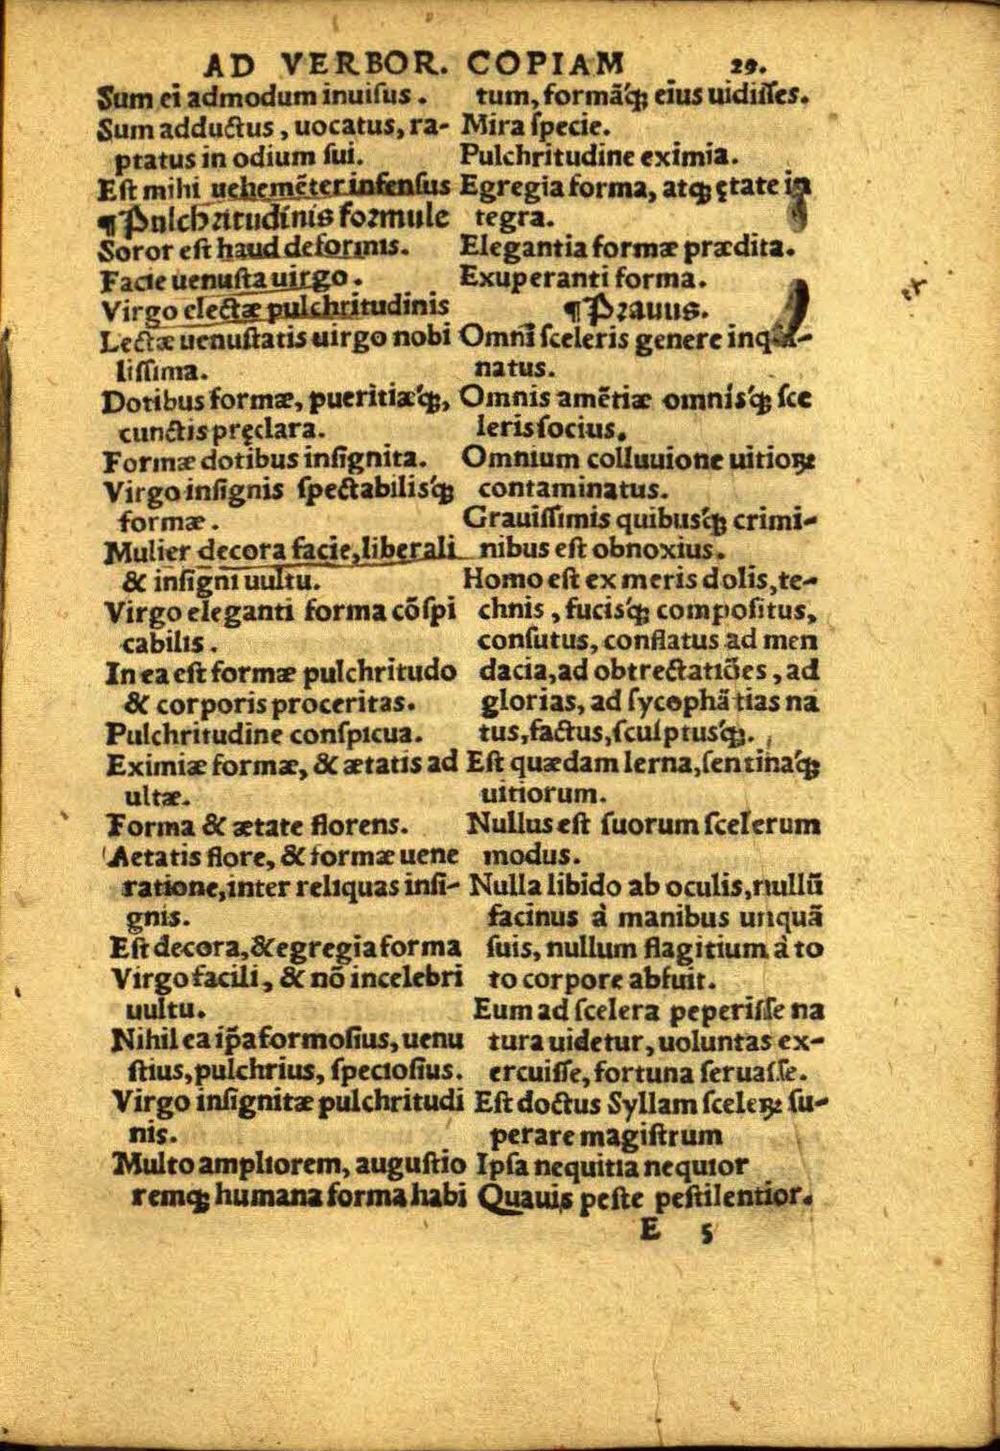 AD VERBOR. COPIAM 29.
Sum ei admodum inuiſus.
Sum adductus, uocatus, ra-
ptatus in odium ſui.
Eſt mihi uehemẽter infenſus
¶Pulchritudinis formule
Soror eſt haud deformis.
Facie uenuſta uirgo.
Virgo electæ pulchritudinis
Lectæ uenuſtatis uirgo nobi
liſſima.
Dotibus formæ, pueritiæ'q;,
cunctis pręclara.
Formæ dotibus inſignita.
Virgo inſignis ſpectabilis'q;
formæ.
Mulier decora facie, liberali
& inſigni uultu.
Virgo eleganti forma cõſpi
cabilis.
In ea eſt formæ pulchritudo
& corporis proceritas.
Pulchritudine conſpicua.
Eximiæ formæ, & ætatis ad
ultæ.
Forma & ætate florens.
Aetatis flore, & formæ uene
ratione, inter reliquas inſi-
gnis.
Eſt decora, & egregia forma
Virgo facili, & nõ incelebri
uultu.
Nihil ea ip̃a formoſius, uenu
ſtius, pulchrius, ſpecioſius.
Virgo inſignitæ pulchritudi
nis.
Multo ampliorem, auguſtio
remq; humana forma habi
tum, formã'q; eius uidiſſes.
Mira ſpecie.
Pulchritudine eximia.
Egregia forma, atq; ętate in
tegra.
Elegantia formæ prædita.
Exuperanti forma.
¶Prauus.
Omni ſceleris genere inqui-
natus.
Omnis amẽtiæ omnis'q; ſce
leris ſocius.
Omnium colluuione uitioꝝ
contaminatus.
Grauiſſimis quibus'q; crimi-
nibus eſt obnoxius.
Homo eſt ex meris dolis, te-
chnis, fucis'q; compoſitus,
conſutus, conflatus ad men
dacia, ad obtrectatiões, ad
glorias, ad ſycophãtias na
tus, factus, ſculptus'q;.
Eſt quædam lerna, ſentina'q;
uitiorum.
Nullus eſt ſuorum ſcelerum
modus.
Nulla libido ab oculis, nullũ
facinus à manibus unquã
ſuis, nullum flagitium à to
to corpore abfuit.
Eum ad ſcelera peperiſſe na
tura uidetur, uoluntas ex-
ercuiſſe, fortuna ſeruaſſe.
Eſt doctus Syllam ſceleꝝ ſu-
perare magiſtrum
Ipſa nequitia nequior
Quauis peſte peſtilentior.
E 5